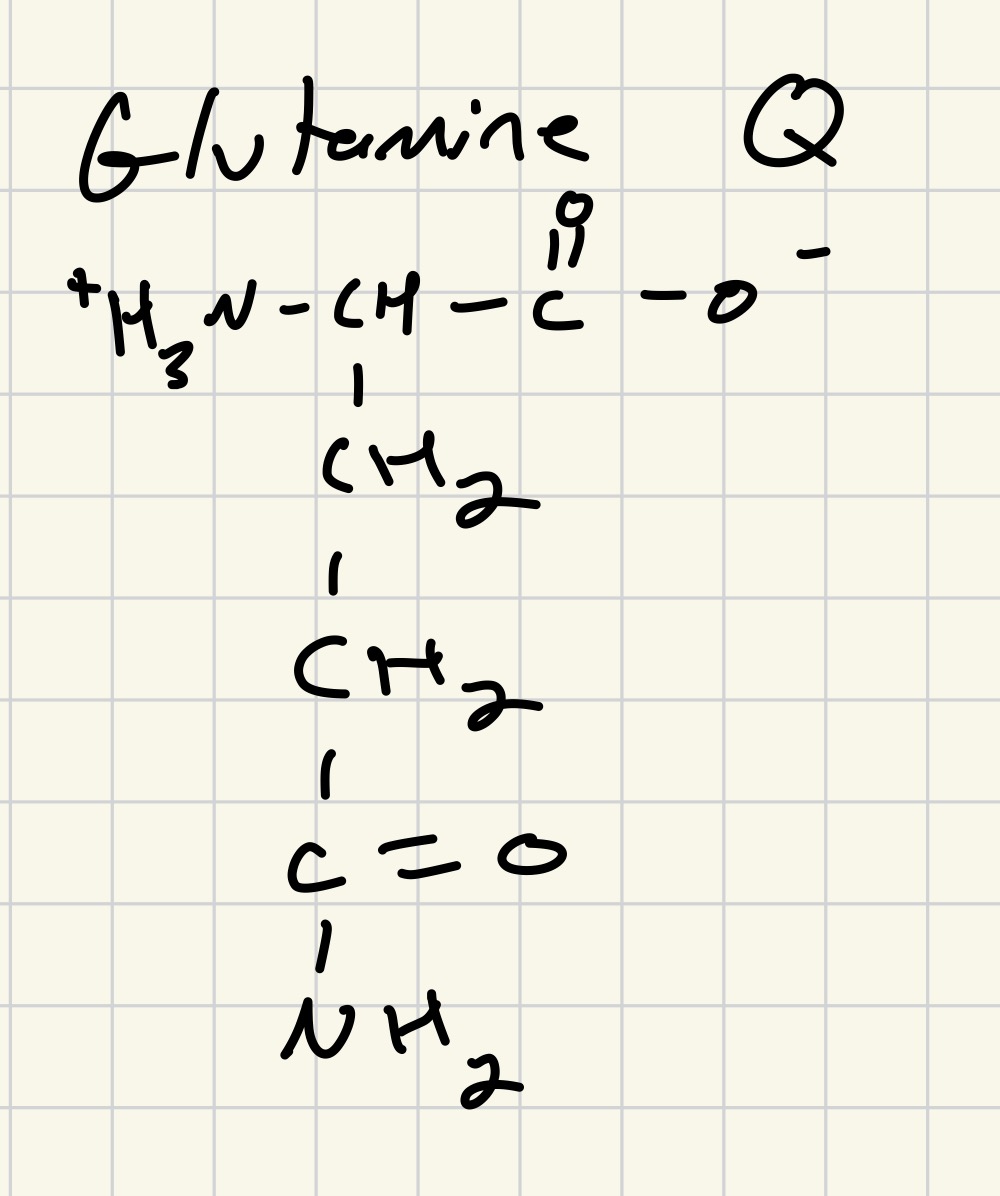 Glutamine Q
O
||
⁺H₃N - CH - C - O⁻
|
CH₂
|
CH₂
|
C = O
|
NH₂